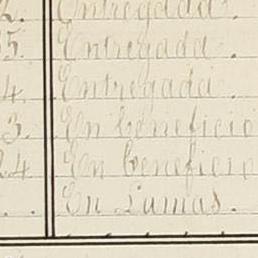 2. Entregada.
5. Entregada.
4. Entregada.
3. En beneficio
24 En beneficio
. En Lamas.